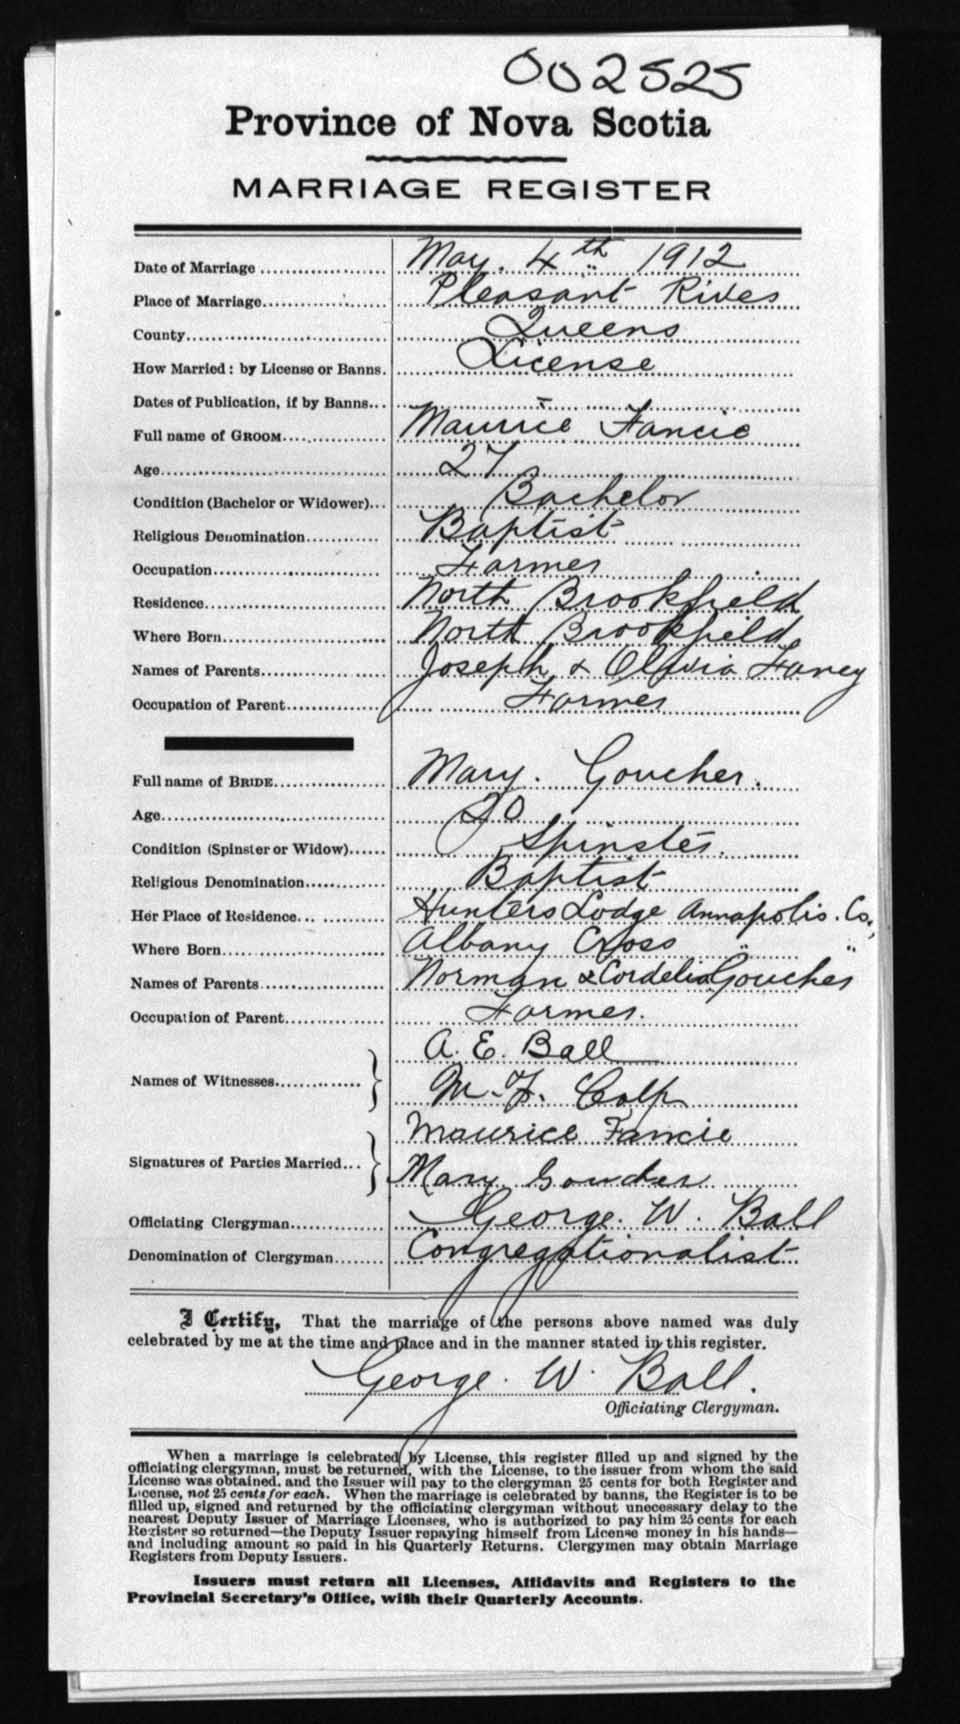 002525
Province of Nova Scotia
MARRIAGE REGISTER
Date of Marriage May. 4th 1912
Place of Marriage Pleasant River
County Queens
How Married: by License or Banns. License
Dates of Publication, if by Banns...
Full name of GROOM Maurice Fancie
Age 27
Condition (Bachelor or Widower)... Bachelor
Religious Denomination Baptist
Occupation Farmer
Residence North Brookfield
Where Born North Brookfield
Names of Parents Joseph & Olivia Fancy
Occupation of Parent Farmer
Full name of BRIDE Mary. Goucher.
Age 20
Condition (Spinster or Widow) Spinster.
Religious Denomination Baptist
Her Place of Residence Hunters Lodge Annapolis. Co.,
Where Born Albany Cross " "
Names of Parents Norman & Cordelia Goucher
Occupation of Parent Farmer.
Names of Witnesses A. E. Ball
M. F. Colp
Signatures of Parties Married Maurice Fancie
Mary Goucher
Officiating Clergyman George. W. Ball
Denomination of Clergyman Congregationalist
I Certify, That the marriage of the persons above named was duly
celebrated by me at the time and place and in the manner stated in this register.
George. W. Ball.
Officiating Clergyman.
When a marriage is celebrated by License, this register filled up and signed by the
officiating clergyman, must be returned, with the License, to the issuer from whom the said
License was obtained, and the Issuer will pay to the clergyman 25 cents for both Register and
License, not 25 cents for each. When the marriage is celebrated by banns, the Register is to be
filled up, signed and returned by the officiating clergyman without unecessary delay to the
nearest Deputy Issuer of Marriage Licenses, who is authorized to pay him 25 cents for each
Register so returned—the Deputy Issuer repaying himself from License money in his hands—
and including amount so paid in his Quarterly Returns. Clergymen may obtain Marriage
Registers from Deputy Issuers.
Issuers must return all Licenses, Affidavits and Registers to the
Provincial Secretary's Office, with their Quarterly Accounts.